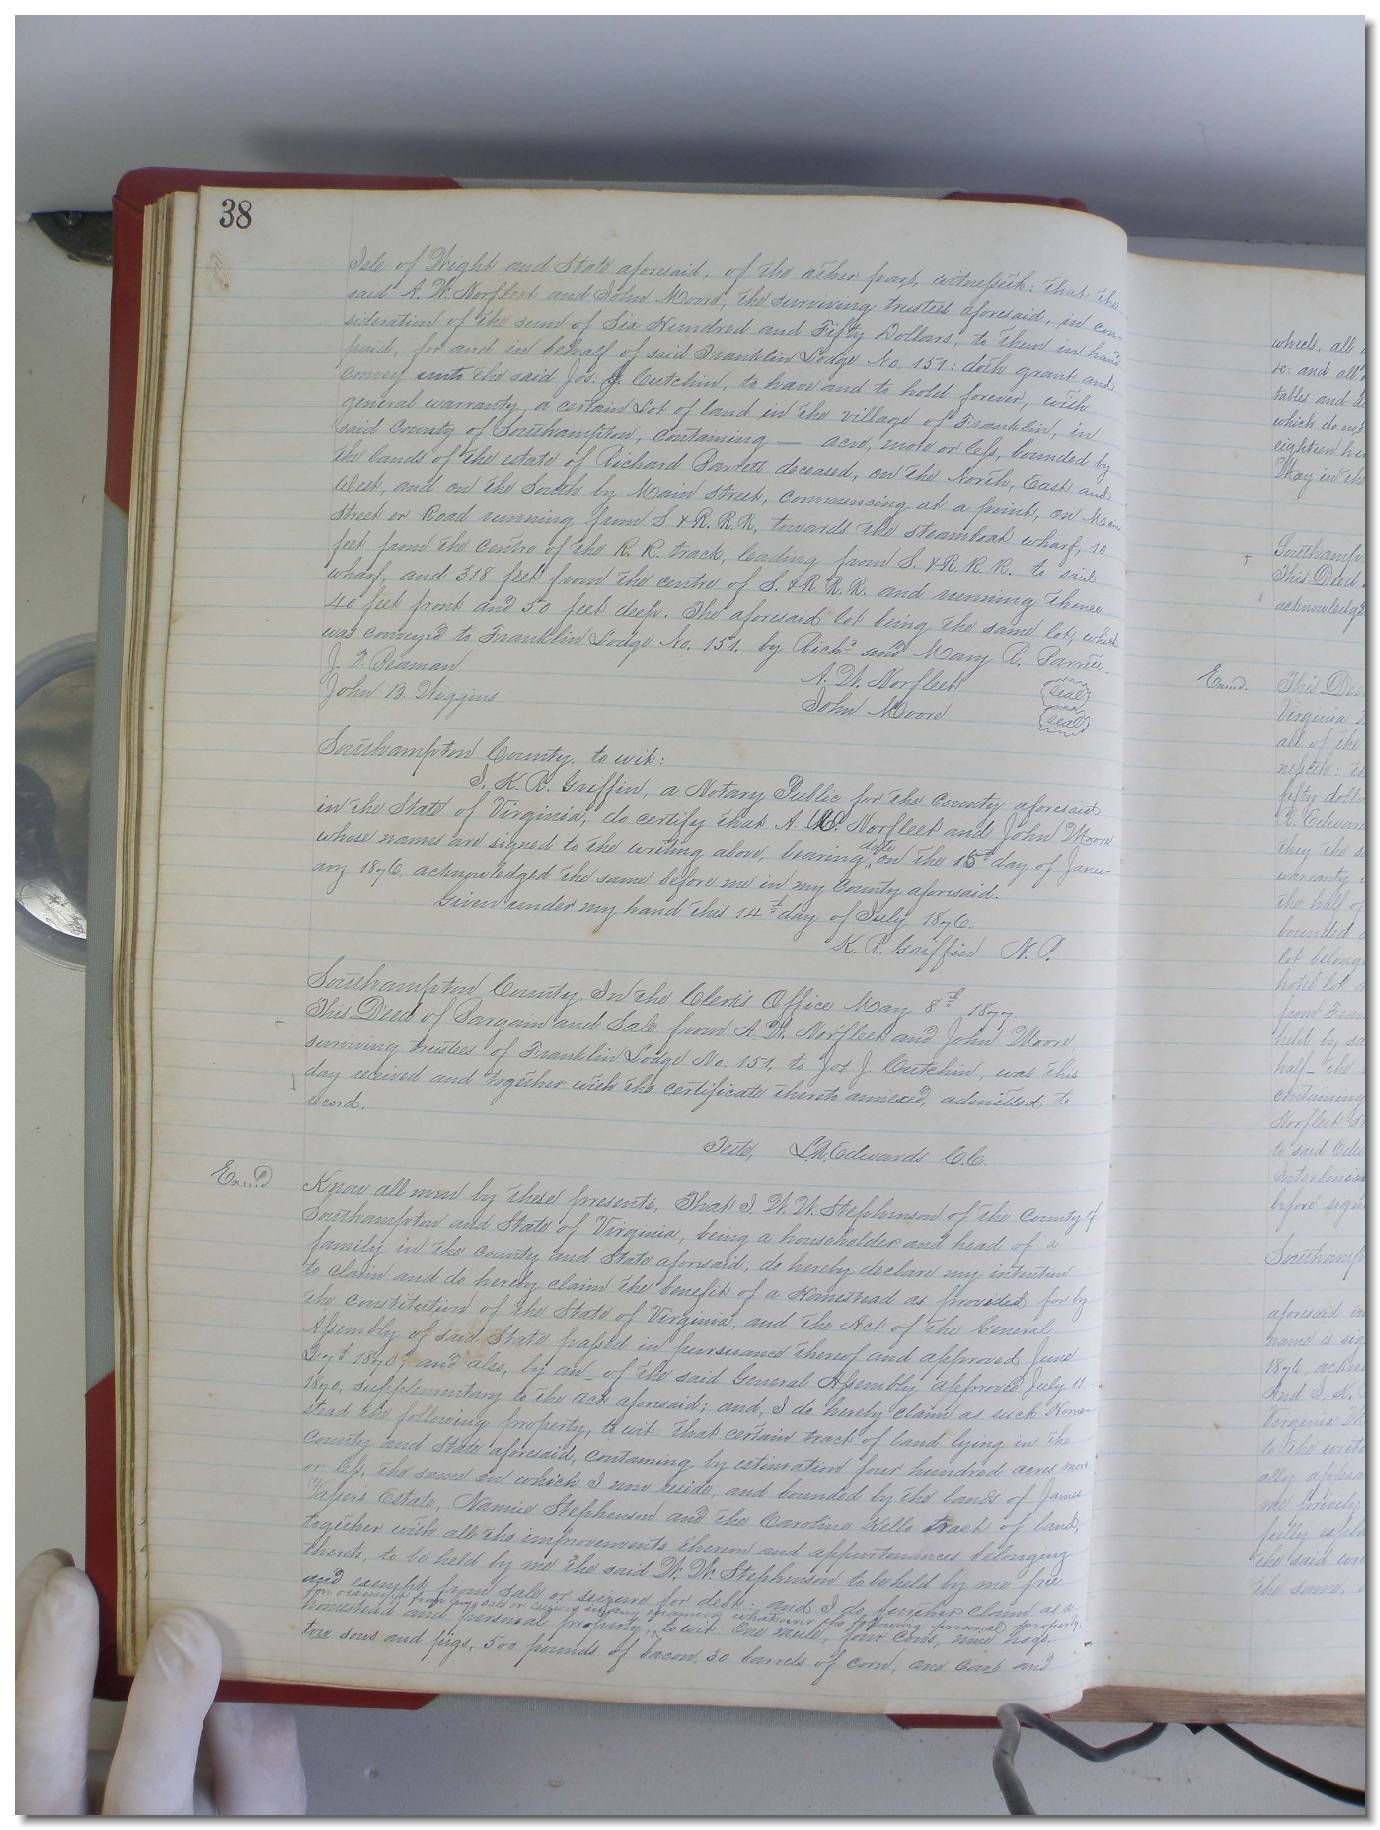 38
Isle of Wight and State aforesaid, of the other part, witnesseth: that the
said A. W. Norfleet and John Moore, the surviving trustees aforesaid, in con-
sideration of the sum of Six Hundred and Fifty Dollars, to them in hand
paid, for and in behalf of said Franklin Lodge No. 151: doth grant and
convey unto the said Jos. J. Cutchin, to have and to hold forever, with
general warranty, a certain Lot of land in the village of Franklin, in
said County of Southampton, containing — acre, more or less, bounded by
the lands of the estate of Richard Barrett deceased, on the North, East and
West, and on the South by Main Street, commencing at a point, on Main
Street or Road running from S. & R. R. R. towards the steamboat wharf, 10
feet from the centre of the R. R. track, leading from S. & R. R. R. to said
wharf, and 318 feet from the centre of S. & R. R. R. and running thence
40 feet front and 50 feet deep. The aforesaid lot being the same lot, which
was conveyed to Franklin Lodge No. 151. by Richd and Mary R. Barrett.
J. F. Beaman A. W. Norfleet seal
John B. Wiggins John Moore seal
Southampton County, to wit:
I, K. R. Griffin, a Notary Public for the County aforesaid
in the State of Virginia, do certify that A. W. Norfleet and John Moore
whose names are signed to the writing above, bearing date on the 15th day of Janu-
ary 1876, acknowledged the same before me in my County aforesaid.
Given under my hand this 14th day of July 1876.
K. R. Griffin N. P.
Southampton County, In the Clerk's Office May 8th 1877
This Deed of Bargain and Sale from A. W. Norfleet and John Moore,
surviving trustees of Franklin Lodge No. 151, to Jos J. Cutchin, was this
day received and together with the certificate thereto annexed, admitted to
record.
Teste, L. R. Edwards C. C.
Exmd
Know all men by these presents, That I W. W. Stephenson of the County of
Southampton and State of Virginia, being a householder and head of a
family in the County and State aforesaid, do hereby declare my intention
to claim and do hereby claim the benefit of a Homestead as provided for by
the constitution of the State of Virginia, and the Act of the General
Assembly of said State passed in pursuance thereof and approved June
27th 1870; and also, by an of the said General Assembly approved July 11.
1870, supplementary to the act aforesaid; and, I do hereby claim as such Home-
stead the following property, to wit: that certain tract of land lying in the
County and State aforesaid, containing by estimation four hundred acres more
or less, the same on which I now reside, and bounded by the lands of James
Estate, Nannie Stephenson and the Caroline Kello tract of land,
together with all the improvements thereon and appurtenances belonging
thereto, to be held by me the said W. W. Stephenson to be held by me free
and exempt from sale or seizure for debt: and I do further claim as a
for exempt from sale or seizure in any manner whatever the following personal property,
homestead and personal property, to wit. One mule, four Cows, nine hogs.
two sows and pigs, 500 pounds of bacon, 30 barrels of corn, one Cart and
wheels, all
se: and all
tables and
which do not
eighteen
May in the
Southampton
This Deed
acknowledg
Exmd.
This Deed
Virginia
all of the
fifty doll
R. Edward
they the
warranty
the half of
bounded
lot belong
hotel lot
from Fran
held by sa
half the
containing
Norfleet
to said Edw
Interlinin
before sign
Southampt
aforesaid
name is sig
1876, ackn
And I, K.
Virginia
to the writ
ally appea
me privily
fully expl
the said
the same,